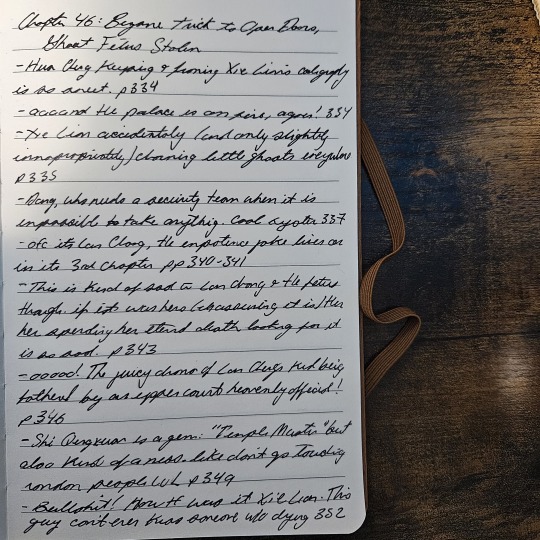 Chapter 46: Bizarre trick to Open Doors,
Ghost Fetus Stolen
- Hua Cheng Keeping & framing Xie Lian's caligraphy
is so sweet. p334
- aaaand the palace is on fire, again! 334
- Xie Lian accidentaly (and only slightly
innapropriately) claiming little ghosts everywhere
p335
- Dang, who needs a security team when it is
impossible to take anything. Cool 337
- ofc its Lan Chang, the impotence joke lives on
in its 3rd chapter pp 340-341
- This is kind of sad Lan Chang & the fetus
though, if it was hers (& assuming it is) then
her spending her eternal death looking for it
is so sad. p343
- ooooo! The juicy drama of Lan Chang's kid being
fathered by an upper court heavenly official!
p346
- Shi Qingxuan is a gem: "Temple Master" but
also kind of a mess. like don't go touching
random people LOL p349
- Bullshit! How it was it Xie Lian. This
guy can't even kiss someone w/o dying 352